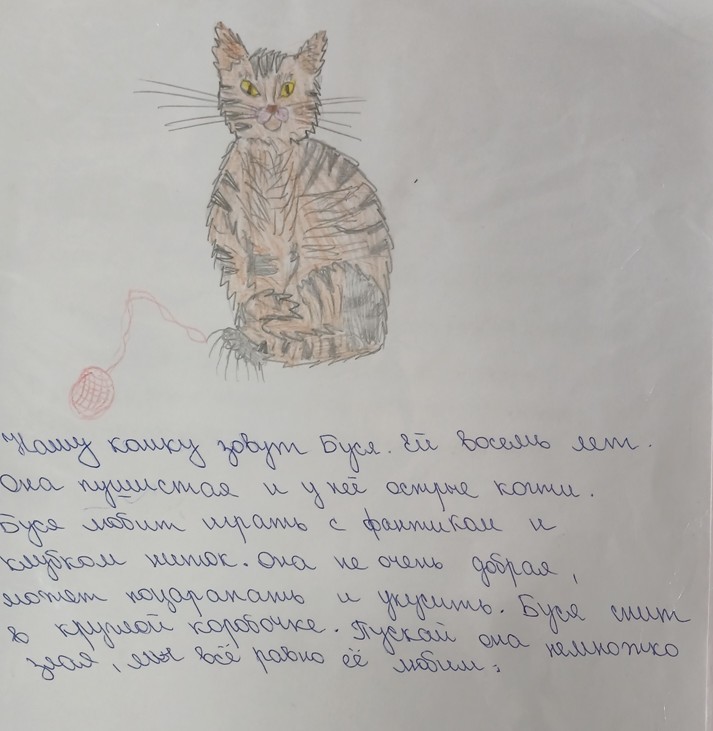 Нашу кошку зовут Буся. Ей восемь лет.
Она пушистая и у неё острые когти.
Буся любит играть с фантиком и
клубком ниток. Она не очень добрая,
может поцарапать и укусить. Буся спит
в круглой коробочке. Пускай она немножко
злая, мы всё равно её любим.